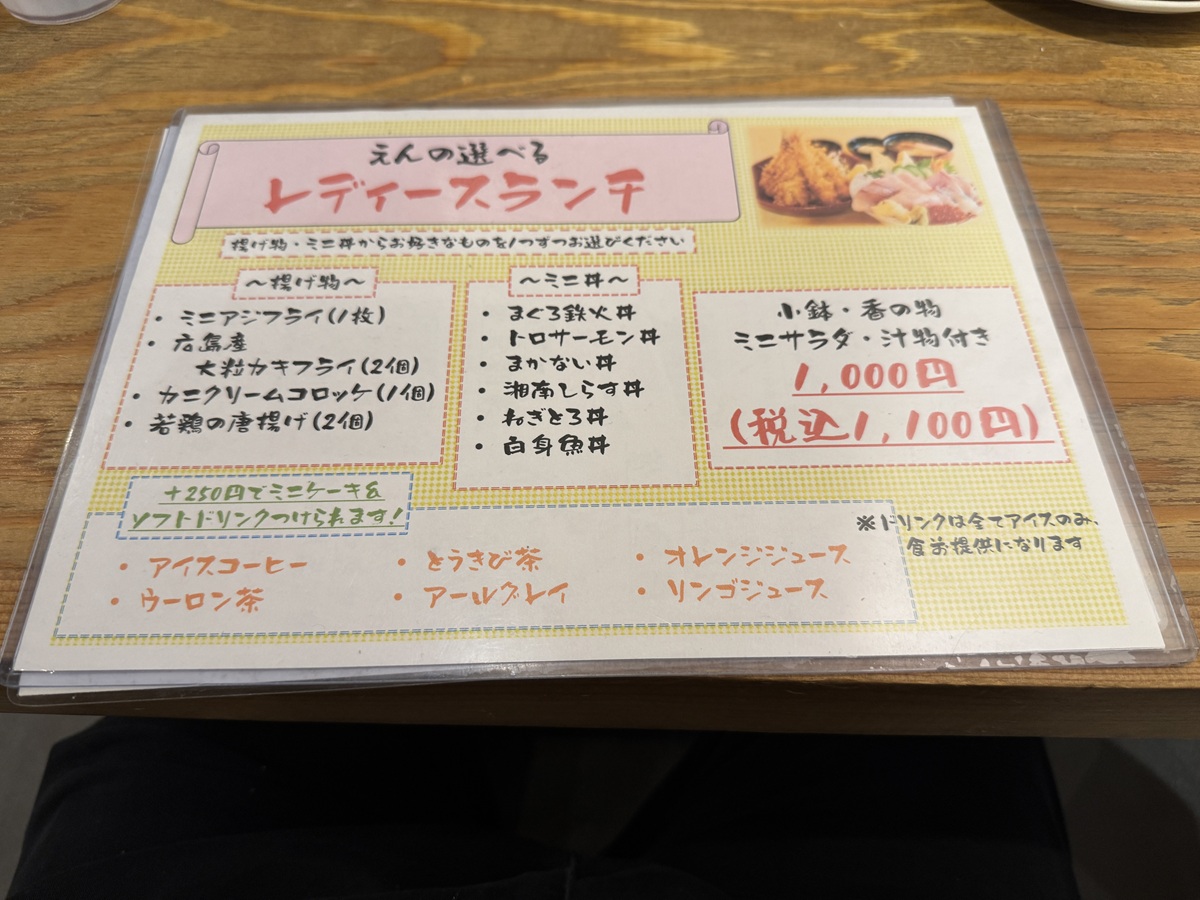 えんの選べる
レディースランチ
揚げ物・ミニ丼からお好きなものを1つずつお選びください
～揚げ物～
・ ミニアジフライ(1枚)
・ 広島産
大粒カキフライ(2個)
・ カニクリームコロッケ(1個)
・ 若鶏の唐揚げ(2個)
～ミニ丼～
・ まぐろ鉄火丼
・ トロサーモン丼
・ まかない丼
・ 湘南しらす丼
・ ねぎとろ丼
・ 白身魚丼
小鉢・香の物
ミニサラダ・汁物付き
1,000円
(税込1,100円)
+250円でミニケーキ&
ソフトドリンクつけられます!
・ アイスコーヒー
・ ウーロン茶
・ とうきび茶
・ アールグレイ
・ オレンジジュース
・ リンゴジュース
※ドリンクは全てアイスのみ、
食前提供になります